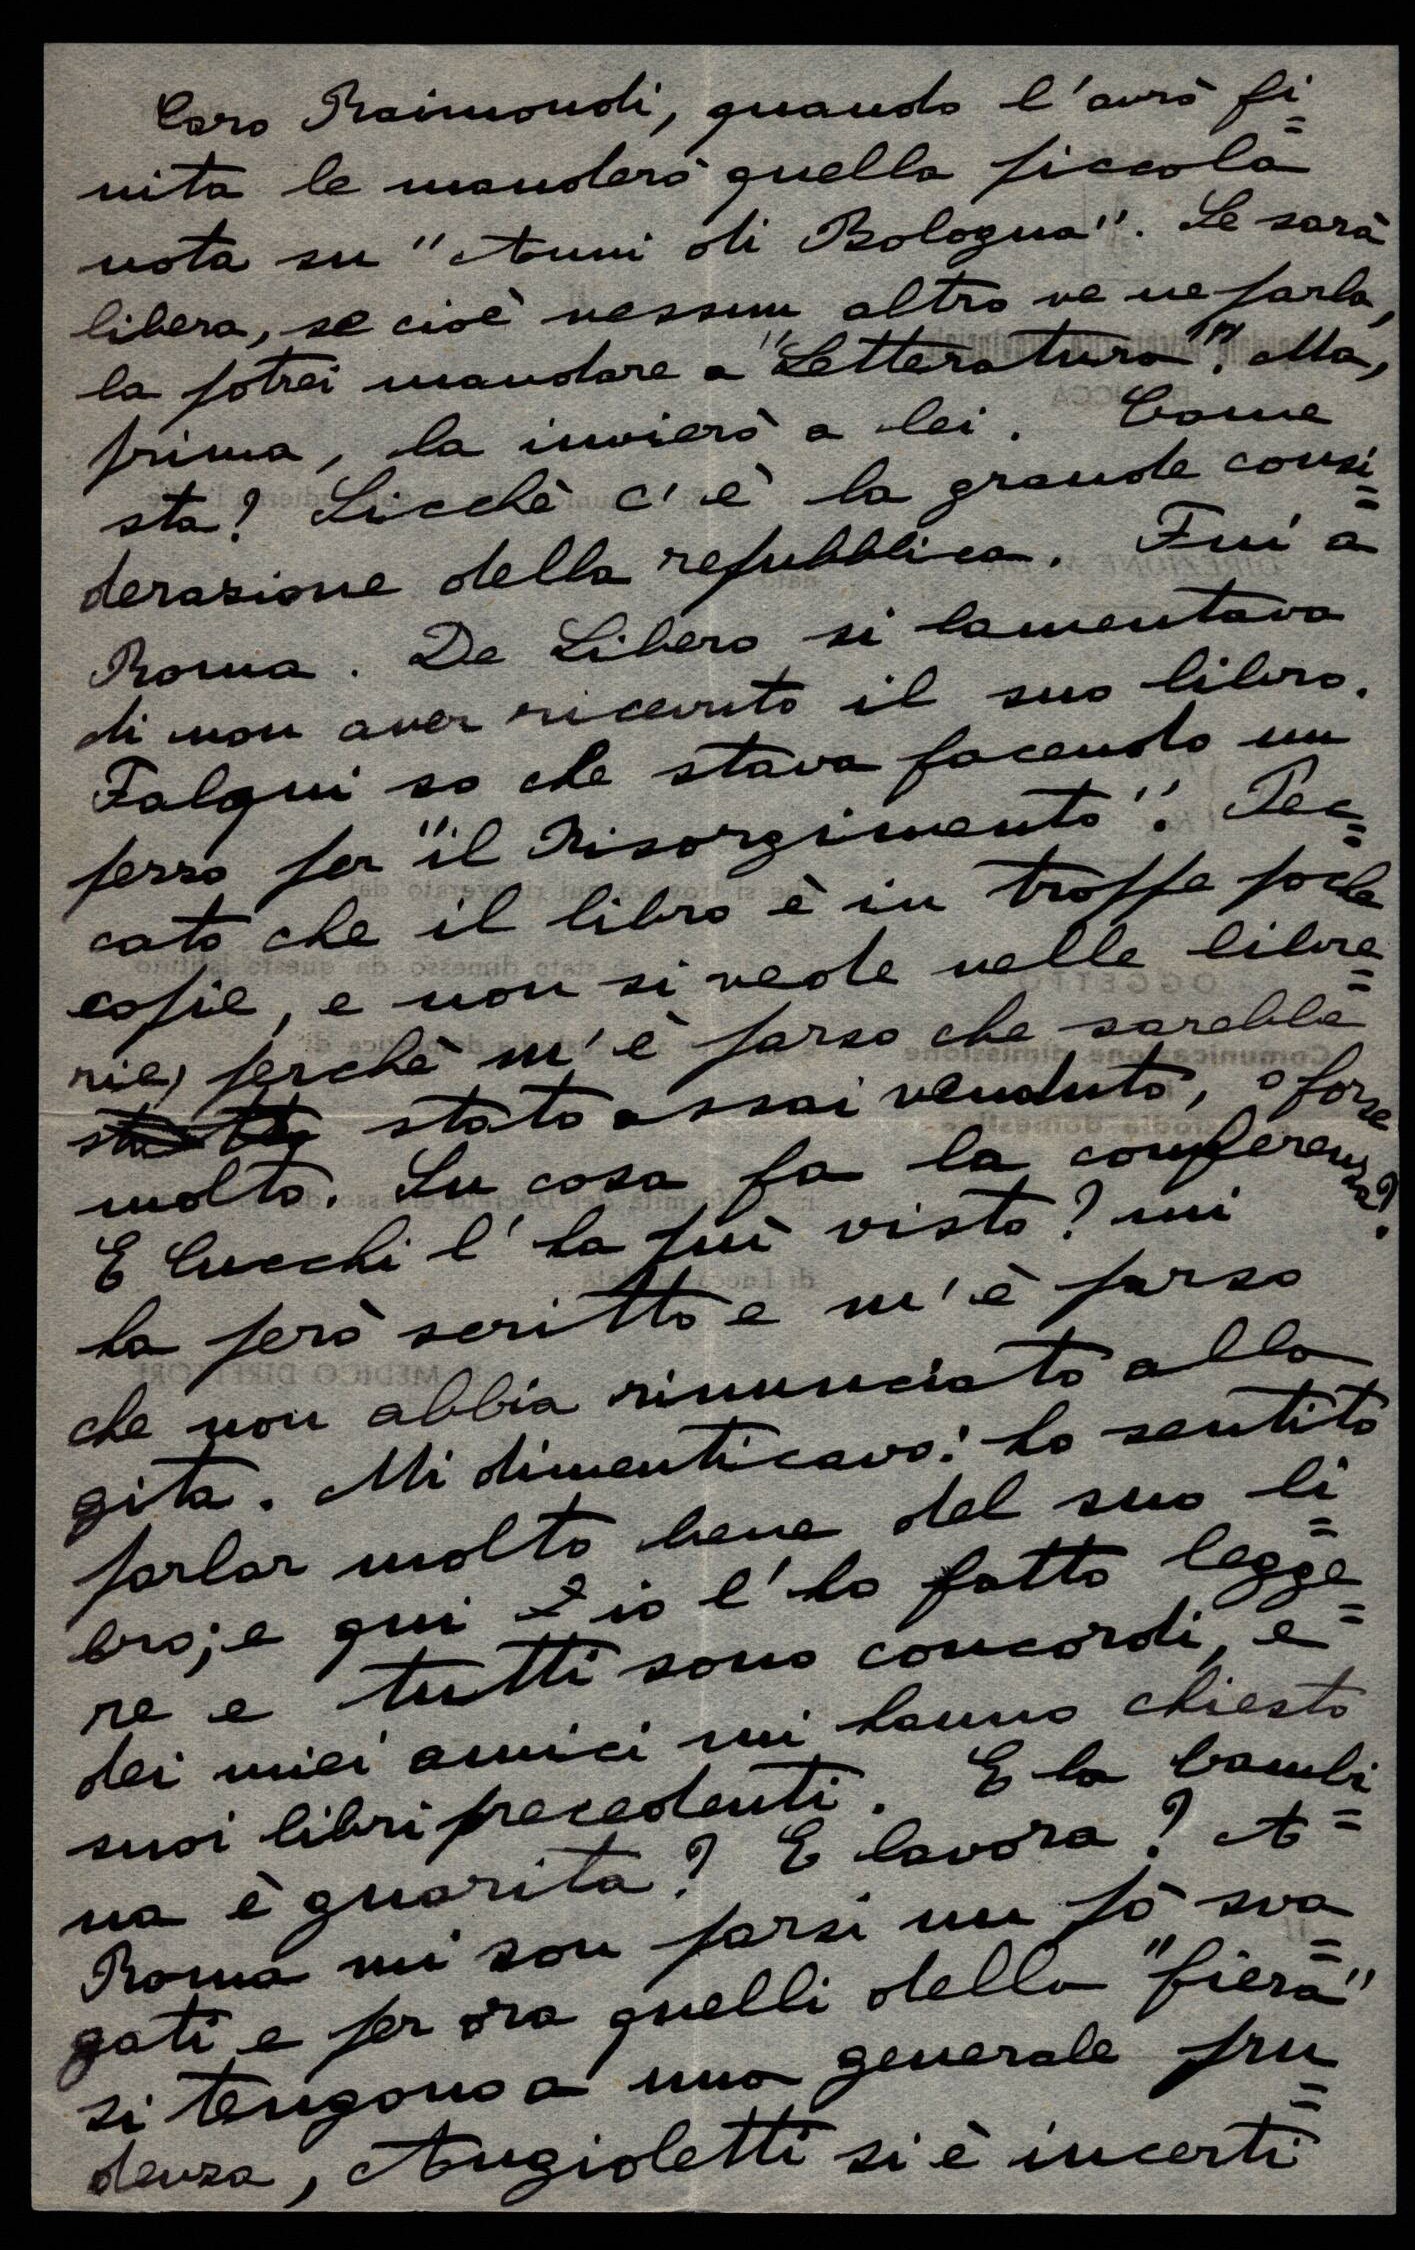 Caro Raimondi, quando l'avrò fi=
nita le manderò quella piccola
nota su "Anni di Bologna". Se sarà
libera, se cioè nessun altro ve ne parla,
la potrei mandare a "Letteratura". Ma,
prima, la invierò a lei. Come
sta? Sicchè c'è la grande consi=
derazione della repubblica. Fui a
Roma. De Libero si lamentava
di non aver ricevuto il suo libro.
Falqui so che stava facendo un
pezzo per "il Risorgimento". Pec=
cato che il libro è in troppe poche
copie, e non si vede nelle libre=
rie, perchè m'è parso che sarebbe
stato assai venduto, o forse
molto. Su cosa fa la conferenza?
E Cucchi l'ha più visto? mi
ha però scritto e m'è parso
che non abbia rinunciato alla
gita. Mi dimenticavo: ho sentito
parlar molto bene del suo li=
bro; e qui io l'ho fatto legge=
re e tutti sono concordi, e
dei miei amici mi hanno chiesto
suoi libri precedenti. E la bambi=
na è guarita? E lavora? A
Roma mi son parsi un pò sva=
gati e per ora quelli della "fiera"
si tengono a una generale pru=
denza, Angioletti si è incerti